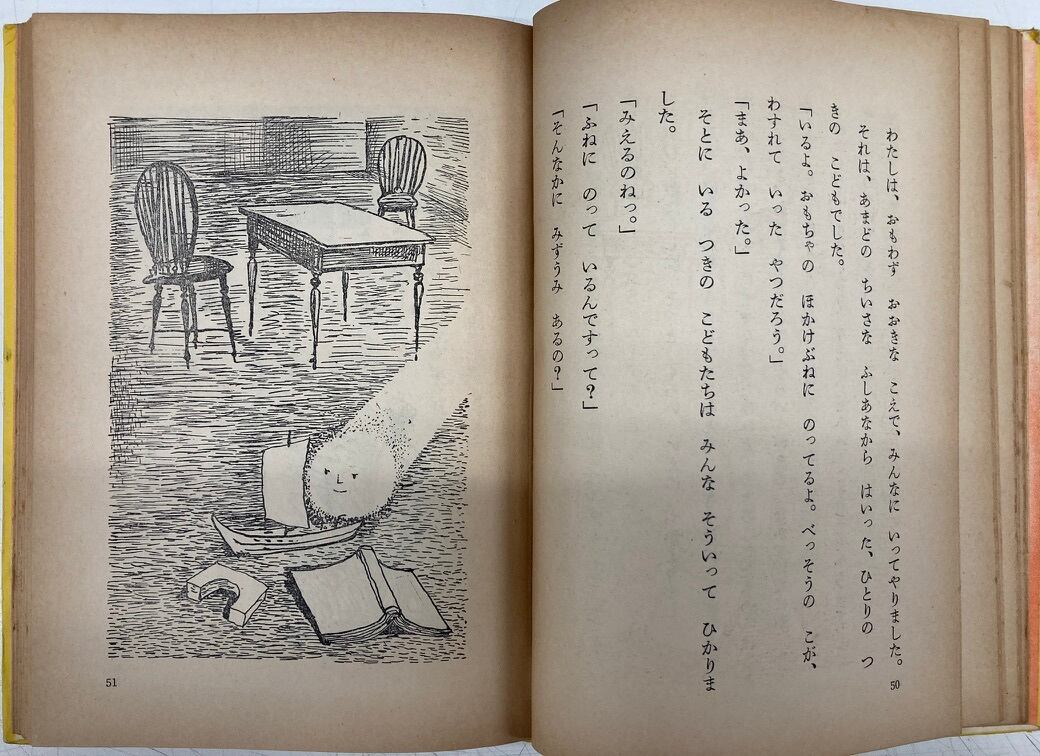 わたしは、おもわず　おおきな　こえで、みんなに　いってやりました。
それは、あまどの　ちいさな　ふしあなから　はいった、ひとりの　つ
きの　こどもでした。
「いるよ。おもちゃの　ほかけぶねに　のってるよ。べっそうの　こが、
わすれて　いった　やつだろう。」
「まあ、よかった。」
そとに　いる　つきの　こどもたちは　みんな　そういって　ひかりま
した。
「みえるのねっ。」
「ふねに　のって　いるんですって？」
「そんなかに　みずうみ　あるの？」
50
51